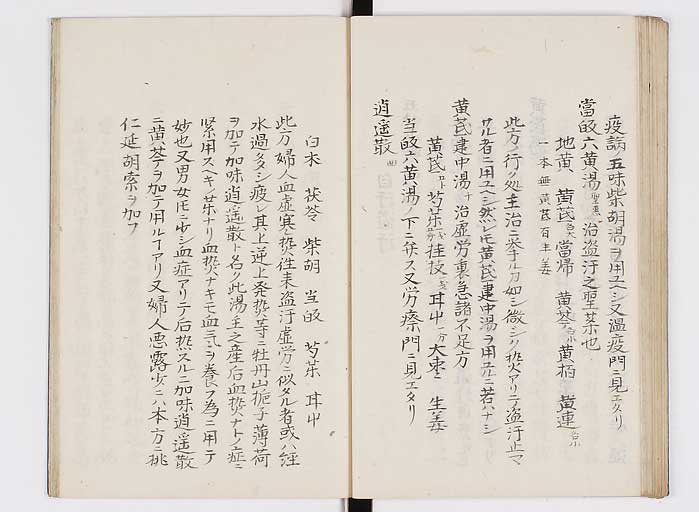 疫病ノ五味柴胡湯ヲ用ユヘシ又温疫門ニ見エタリ
當皈六黄湯 聖恵 治盗汗之聖薬也
地黄 黄芪 各大 當帰 黄芩 各小 黄栢 黄連 各小
一本無黄芪有生姜
此方ノ行ク処主治ニ挙ル方如シ微シク熱アリテ盗汗止マ
サル者ニ用ユヘシ然レ𪜈黄芪建中湯ヲ用ユルニ若ハナシ
黄芪建中湯 治虚労裏急諸不足方
黄芪 芍薬 桂枝 甘屮 大枣 生姜
当皈六黄湯ノ下ニ伏ス又労瘵門ニ見エタリ
逍遥散
白术 茯苓 柴胡 当皈 芍薬 甘屮
此方婦人血虚寒熱往来盗汗虚労ニ似タル者或ハ經
水過多シ疲レ其上逆上発熱等ニ牡丹山梔子薄荷
ヲ加テ加味逍遥散ト名ク此湯主之産后血熱ナトノ症ニ
緊用スヘキ薬ナリ血熱ナキモ血氣ヲ養フ為ニ用テ
妙也又男女𪜈ニ少シ血症アリテ后熱スルニ加味逍遥散
ニ黄芩ヲ加テ用ルヿアリ又婦人悪露少ニハ本方ニ桃
仁延胡索ヲ加フ